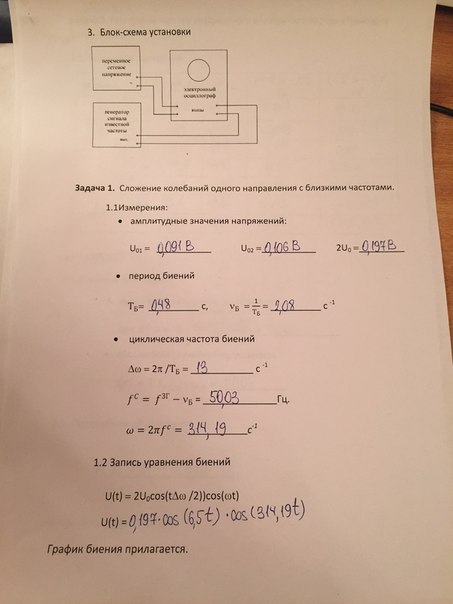 3. Блок-схема установки
переменное
сетевое
напряжение
~
электронный
осциллограф
входы
генератор
сигнала
известной
частоты
вых.
Задача 1. Сложение колебаний одного направления с близкими частотами.
1.1Измерения:
• амплитудные значения напряжений:
U₀₁ = 0,091 В U₀₂ = 0,106 В 2U₀ = 0,197 В
• период биений
T_Б = 0,48 с, ν_Б = 1/T_Б = 2,08 с⁻¹
• циклическая частота биений
Δω = 2π /T_Б = 13 с⁻¹
f^C = f^ЗГ − ν_Б = 50,03 Гц.
ω = 2πf^c = 314,19 с⁻¹
1.2 Запись уравнения биений
U(t) = 2U₀cos(tΔω /2))cos(ωt)
U(t) = 0,197·cos(6,5t)·cos(314,19t)
График биения прилагается.